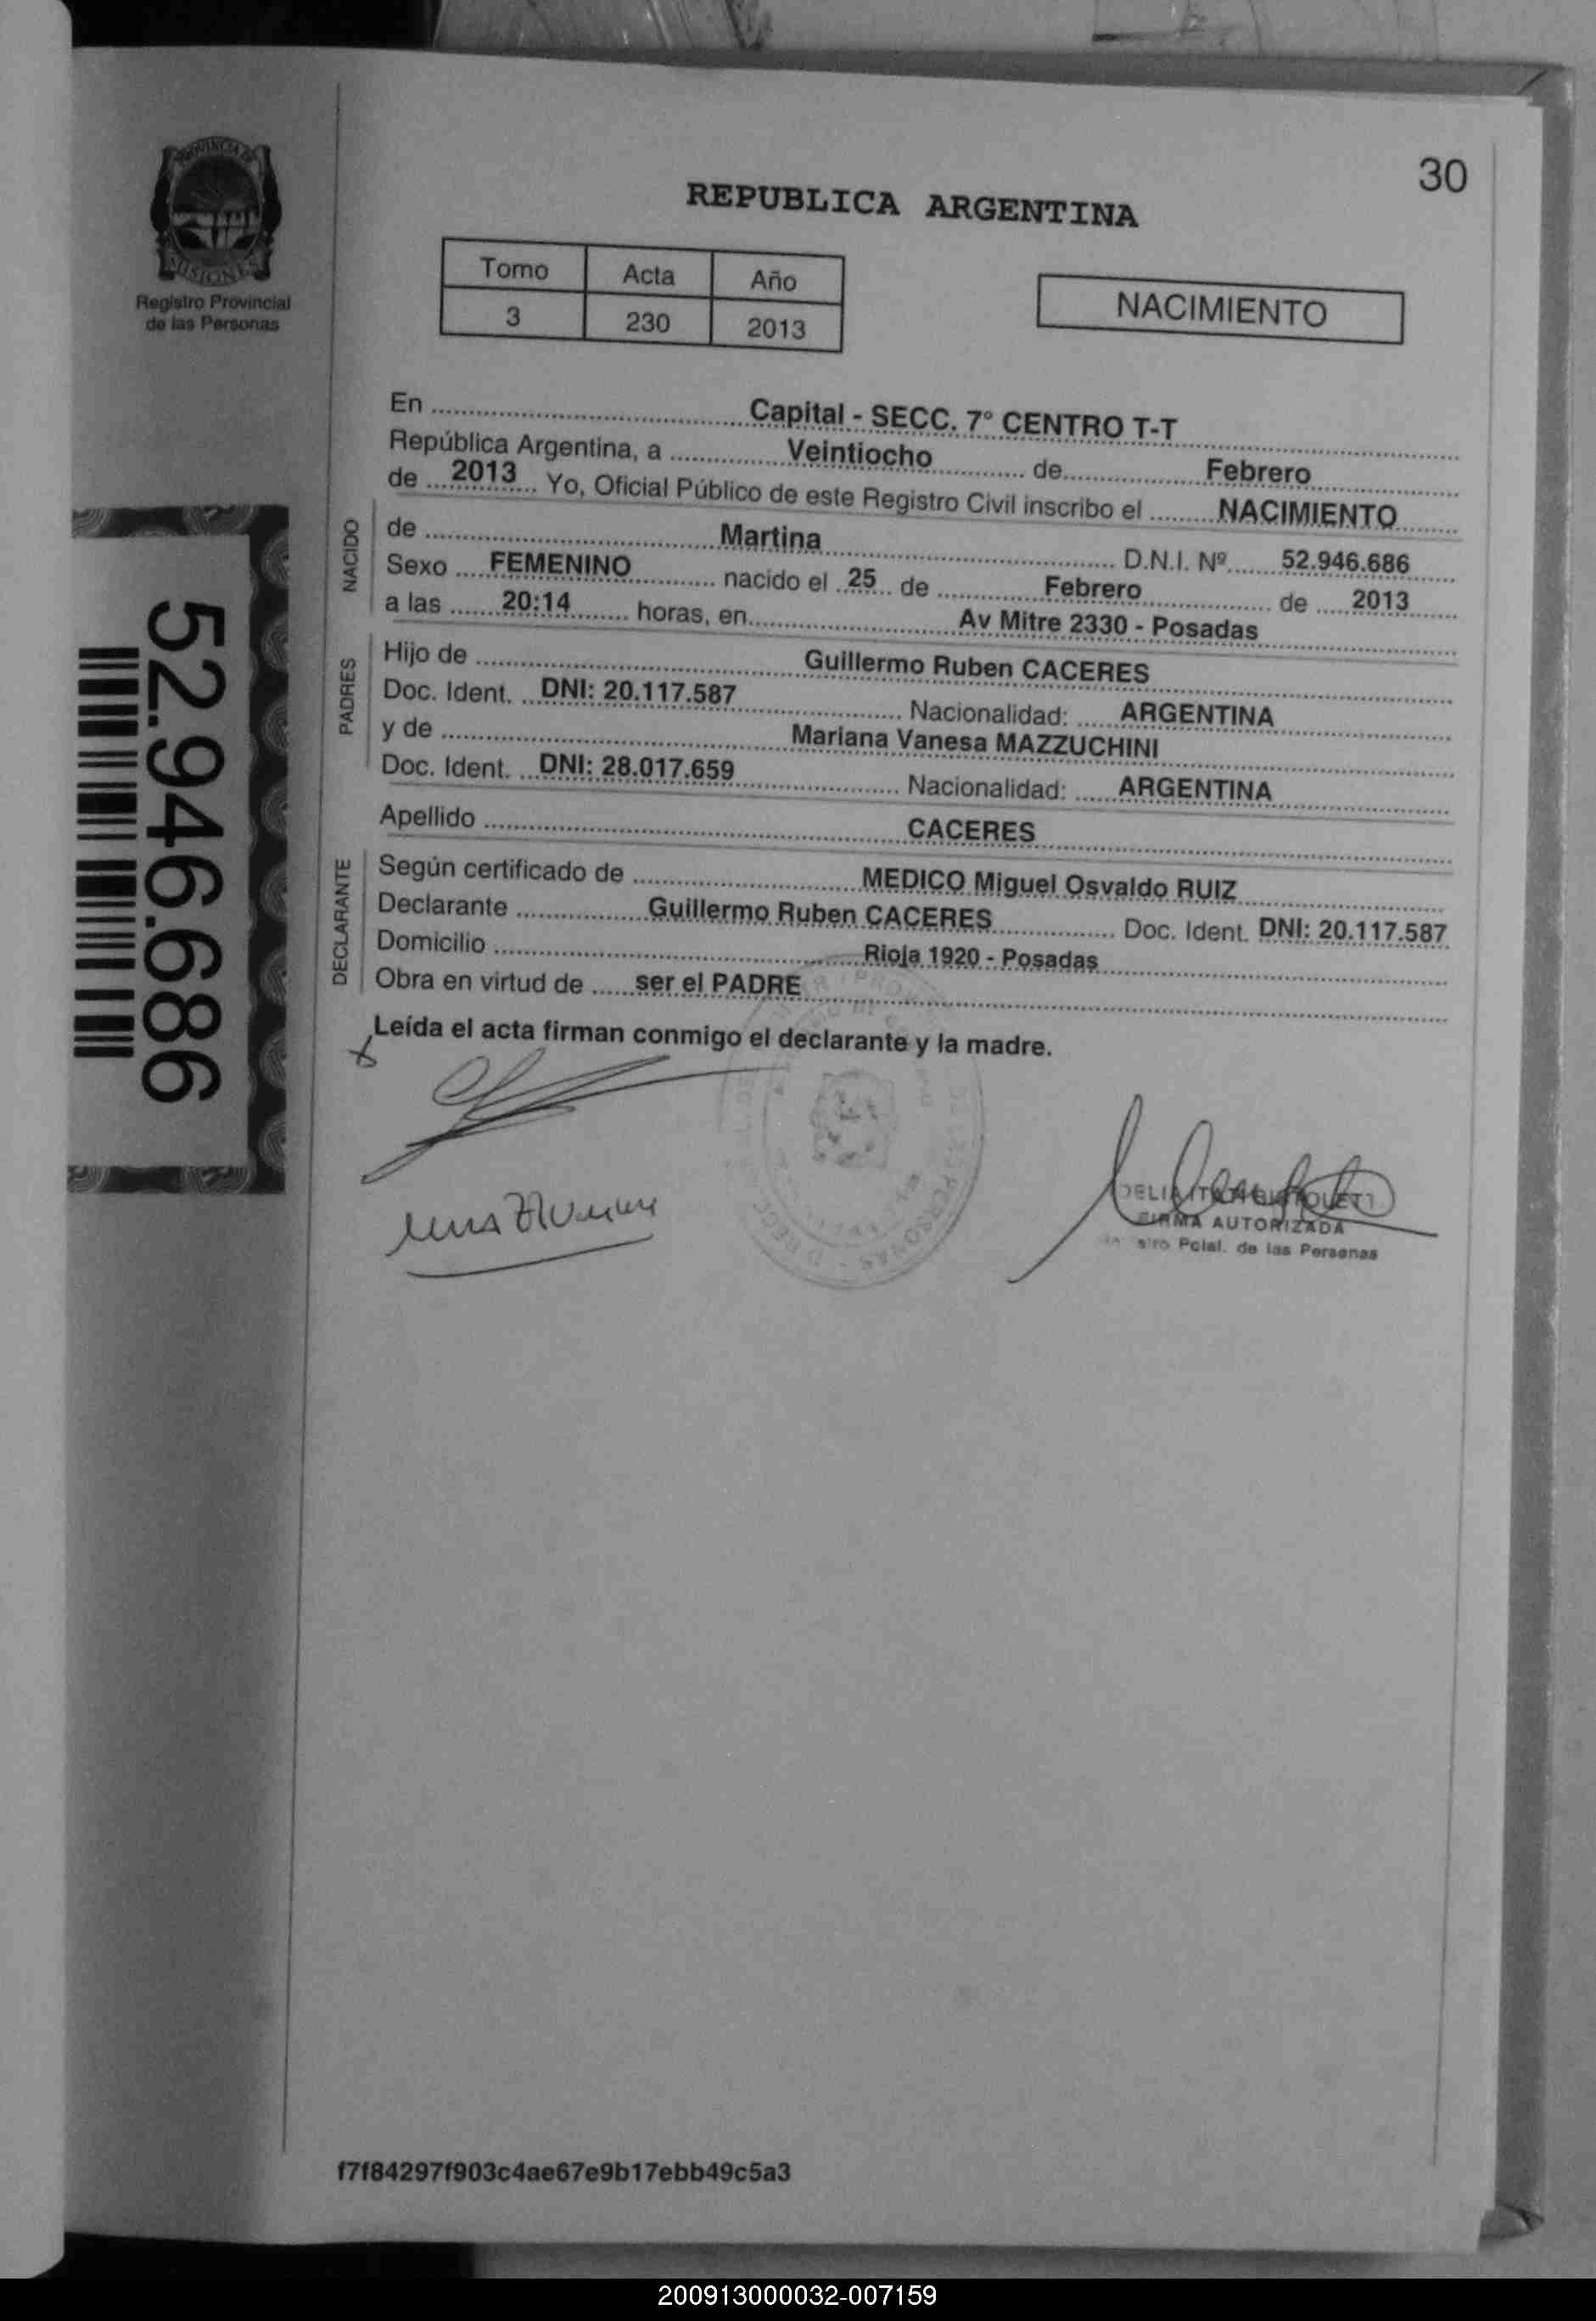 30
PROVINCIA DE
MISIONES
Registro Provincial
de las Personas
REPUBLICA ARGENTINA
Tomo Acta Año
3 230 2013
NACIMIENTO
En Capital - SECC. 7° CENTRO T-T
República Argentina, a Veintiocho de Febrero
de 2013 Yo, Oficial Público de este Registro Civil inscribo el NACIMIENTO
NACIDO
de Martina D.N.I. Nº 52.946.686
Sexo FEMENINO nacido el 25 de Febrero de 2013
a las 20:14 horas, en Av Mitre 2330 - Posadas
PADRES
Hijo de Guillermo Ruben CACERES
Doc. Ident. DNI: 20.117.587 Nacionalidad: ARGENTINA
y de Mariana Vanesa MAZZUCHINI
Doc. Ident. DNI: 28.017.659 Nacionalidad: ARGENTINA
Apellido CACERES
DECLARANTE
Según certificado de MEDICO Miguel Osvaldo RUIZ
Declarante Guillermo Ruben CACERES Doc. Ident. DNI: 20.117.587
Domicilio Rioja 1920 - Posadas
Obra en virtud de ser el PADRE
Leída el acta firman conmigo el declarante y la madre.
52.946.686
FIRMA AUTORIZADA
de las Personas
f7f84297f903c4ae67e9b17ebb49c5a3
200913000032-007159